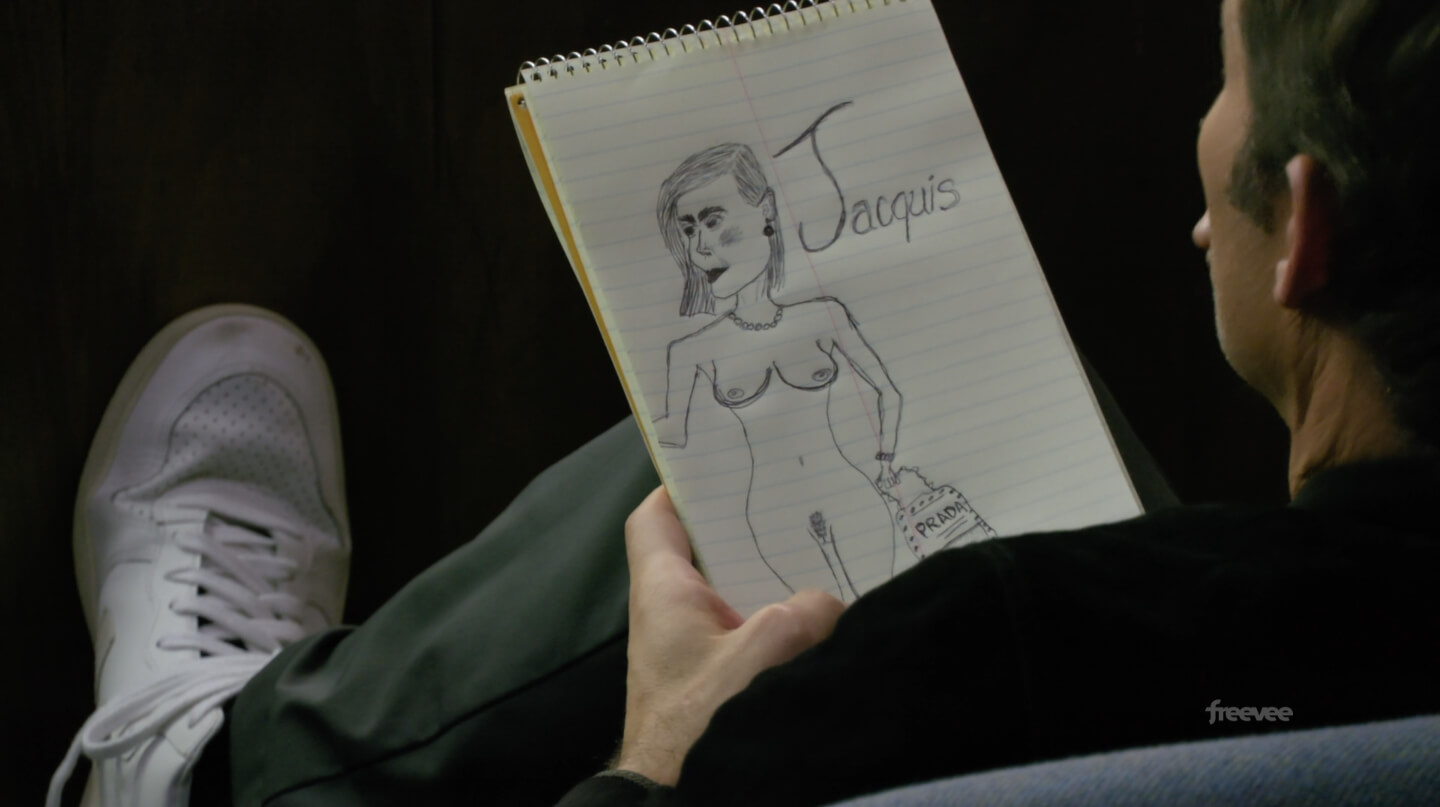 Jacquis
PRADA
freevee